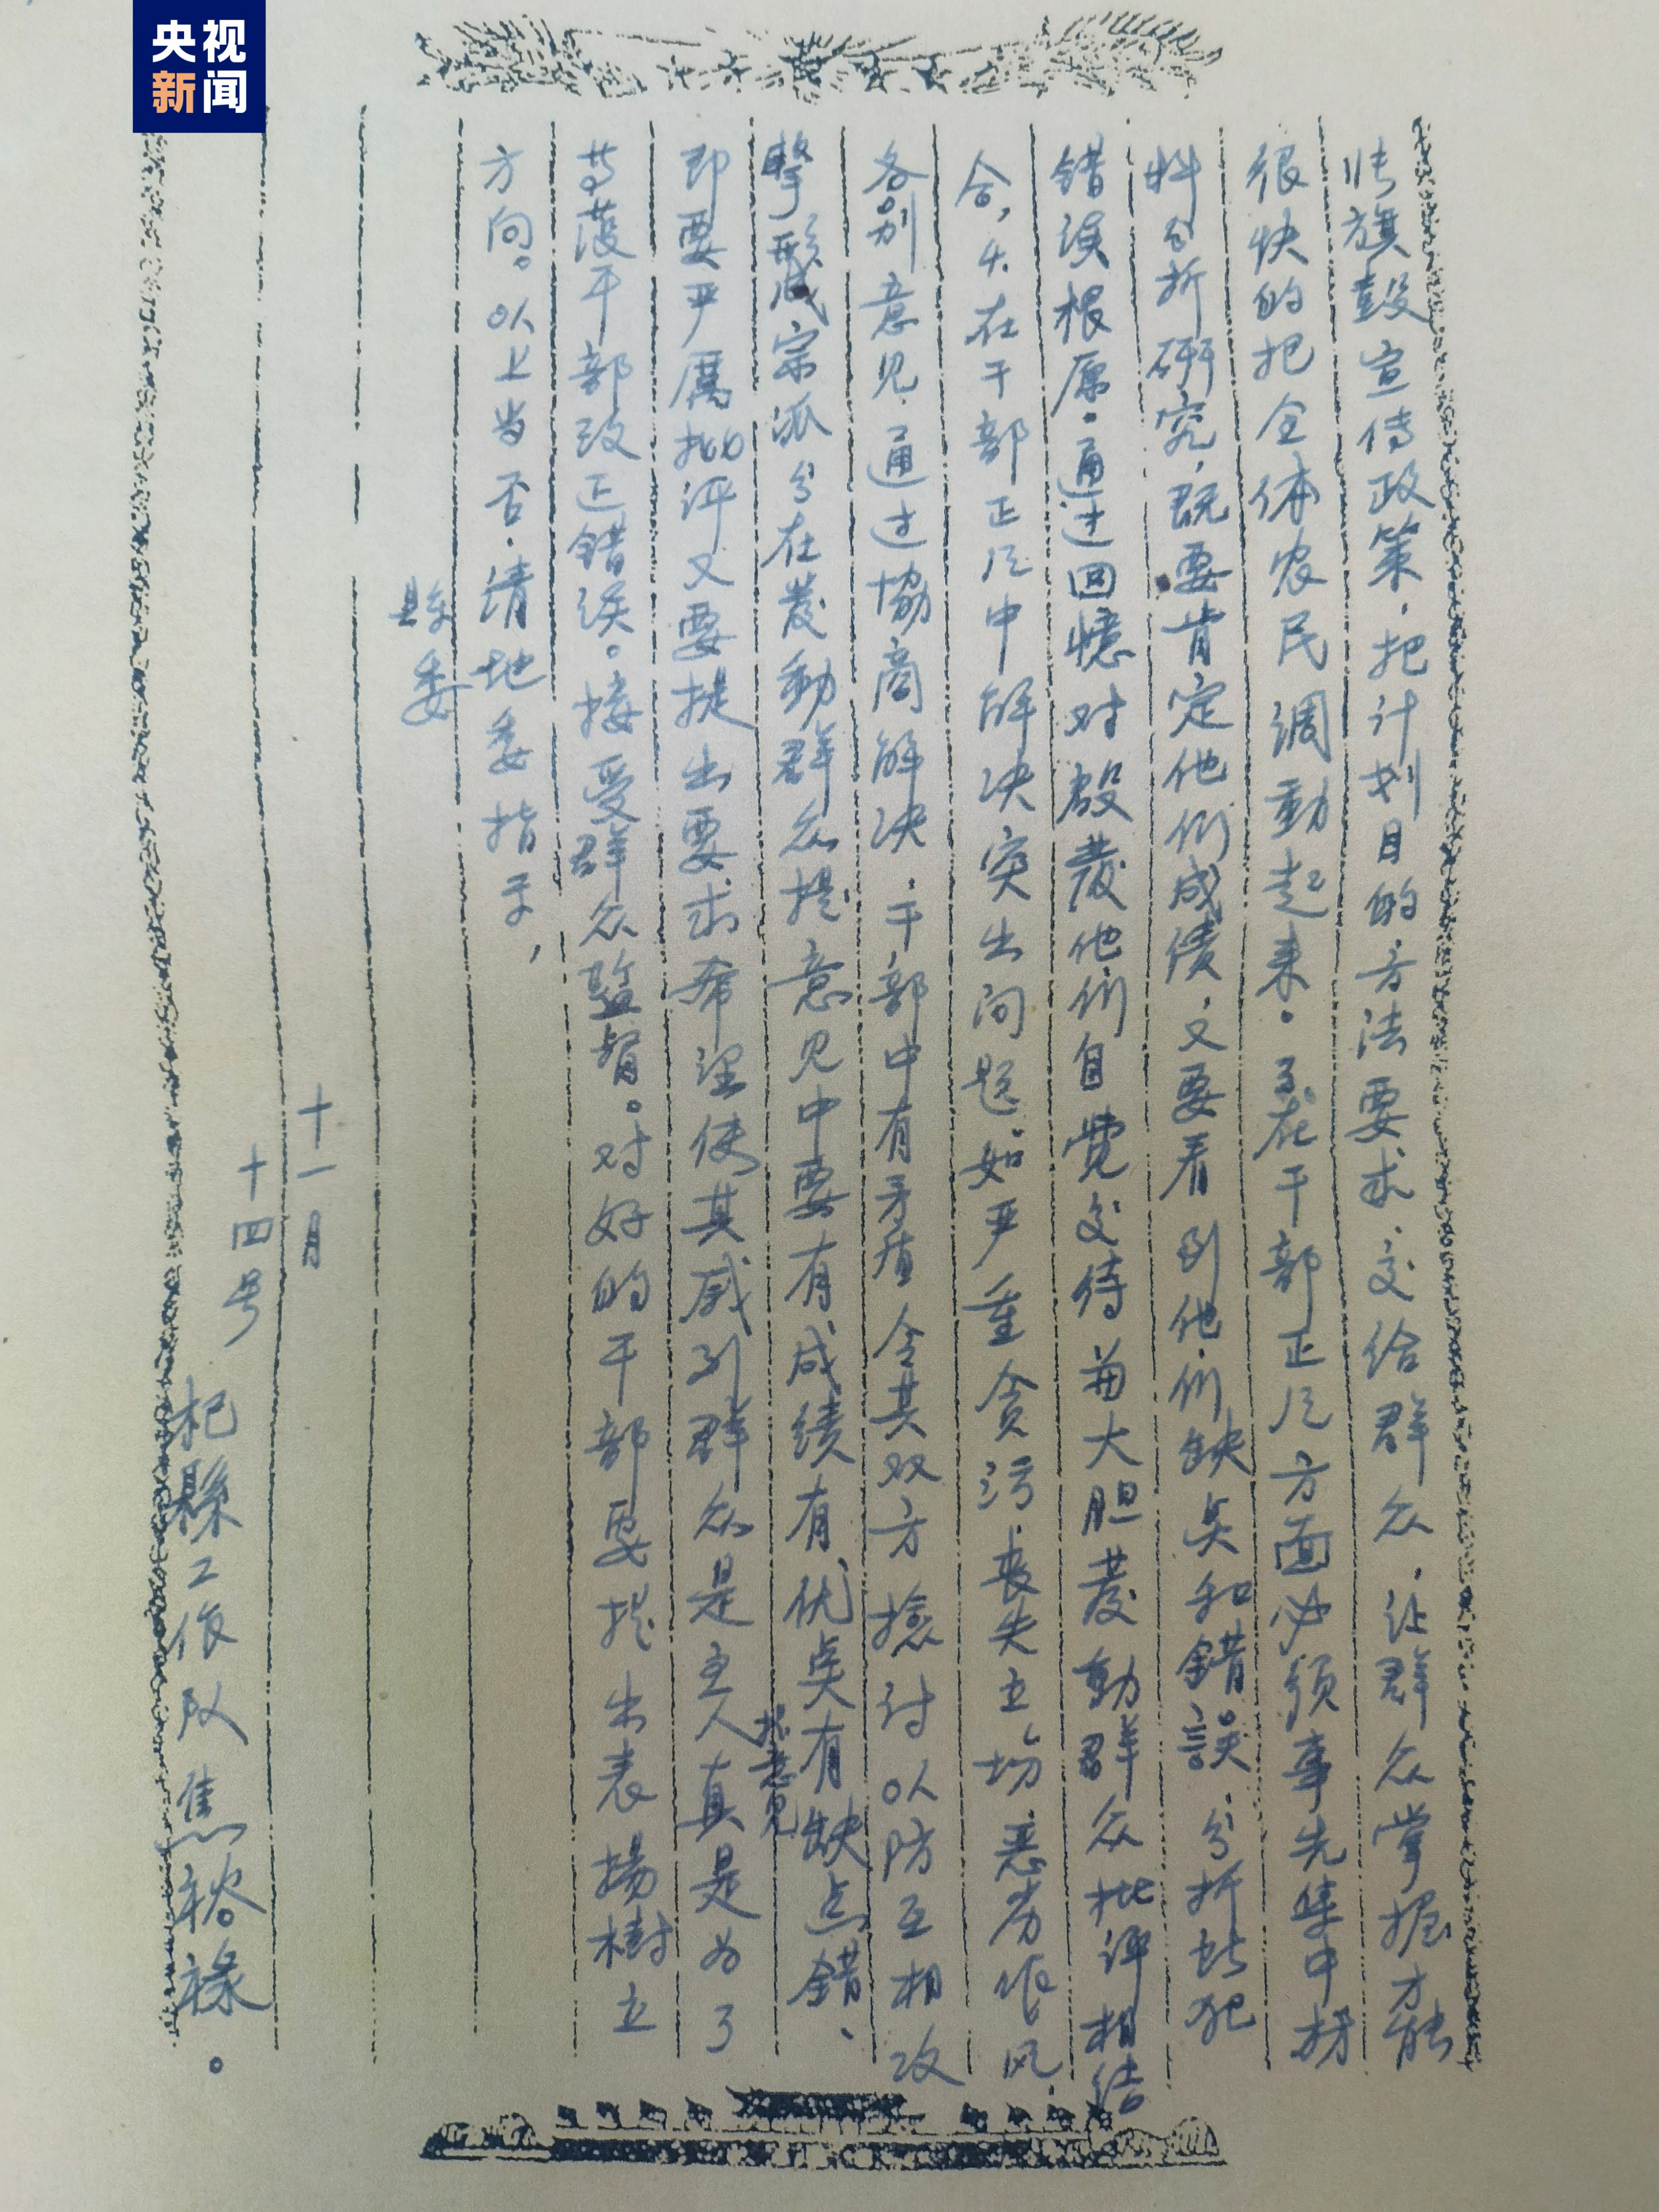 央视
新闻
旗鼓宣传政策.把计划目的方法要求.交给群众.让群众掌握才能
很快的把全体农民调動起来。3.在干部正风方面必须事先集中材
料分析研究,既要肯定他们成绩,又要看到他们缺点和錯誤.分析出犯
错误根原.通过回憶对啟發他们自觉交待并大胆發動群众批评相结
合,4.在干部正风中解决突出问题.如严重贪污丧失立场恶劣作风.
各别意见.通过協商解决.干部中有矛盾令其双方检讨以防互相攻
擊形成宗派.5.在發動群众提意见中要有成绩有优点有缺点错、
提意见
即要严厲批评又要提出要求希望使其感到群众是主人真是为了
帮助干部改正错误。接受群众監督。对好的干部要提出表揚樹立
方向。以上当否.请地委指示,
县委
十一月
十四号
杞縣工作队焦裕禄。